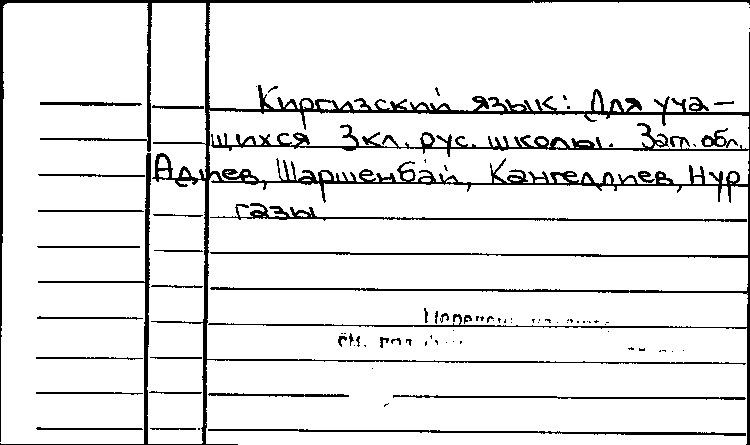 Киргизский язык: Для уча-
щихся 3кл. рус. школы. Загл. обл.
Адиев, Шаршенбай, Кангелдиев, Нур
газы
см.